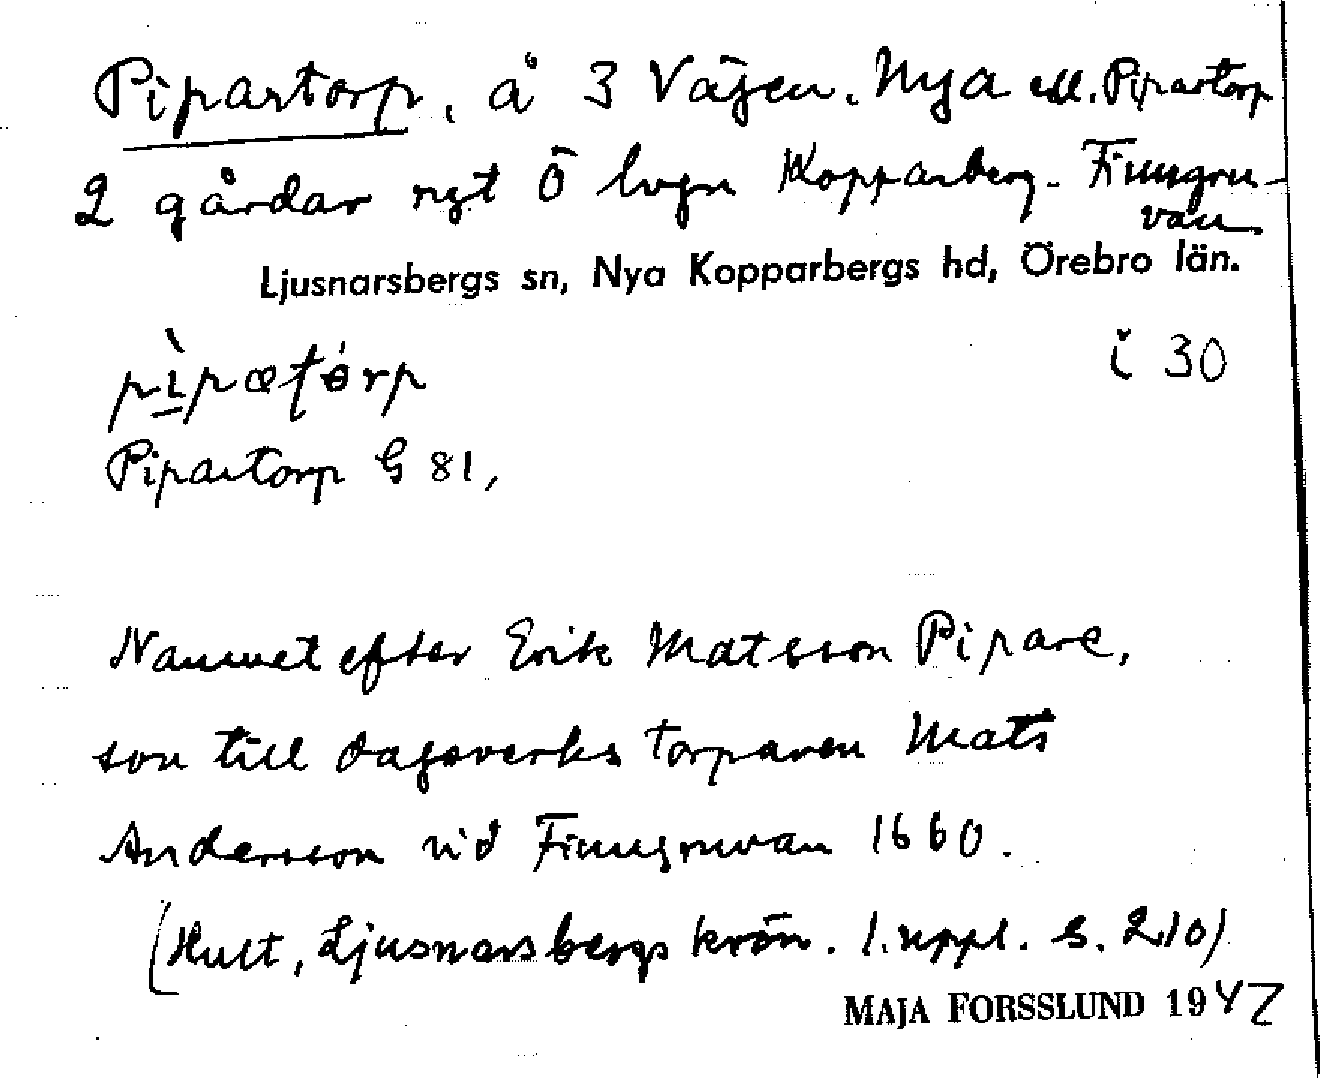 Pipartorp, å 3 Vägen. Nya ell. Pipartorp
2 gårdar nyt Ö Kopparberg. Finngru-
van.
Ljusnarsbergs sn, Nya Kopparbergs hd, Örebro län.
pìpætórp
i 30
Pipartorp G 81,
Namnet efter Erik Matsson Pipare,
son till dagsverks torparen Mats
Andersson vid Finngruvan 1660.
(Hult, Ljusnarsbergs krön. 1. uppl. s. 210)
MAJA FORSSLUND 1942